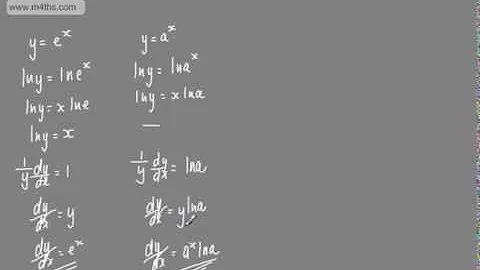 www.m4ths.com
y = e^x
ln y = ln e^x
ln y = x ln e
ln y = x
1/y dy/dx = 1
dy/dx = y
dy/dx = e^x
y = a^x
ln y = ln a^x
ln y = x ln a
—
1/y dy/dx = ln a
dy/dx = y ln a
dy/dx = a^x ln a